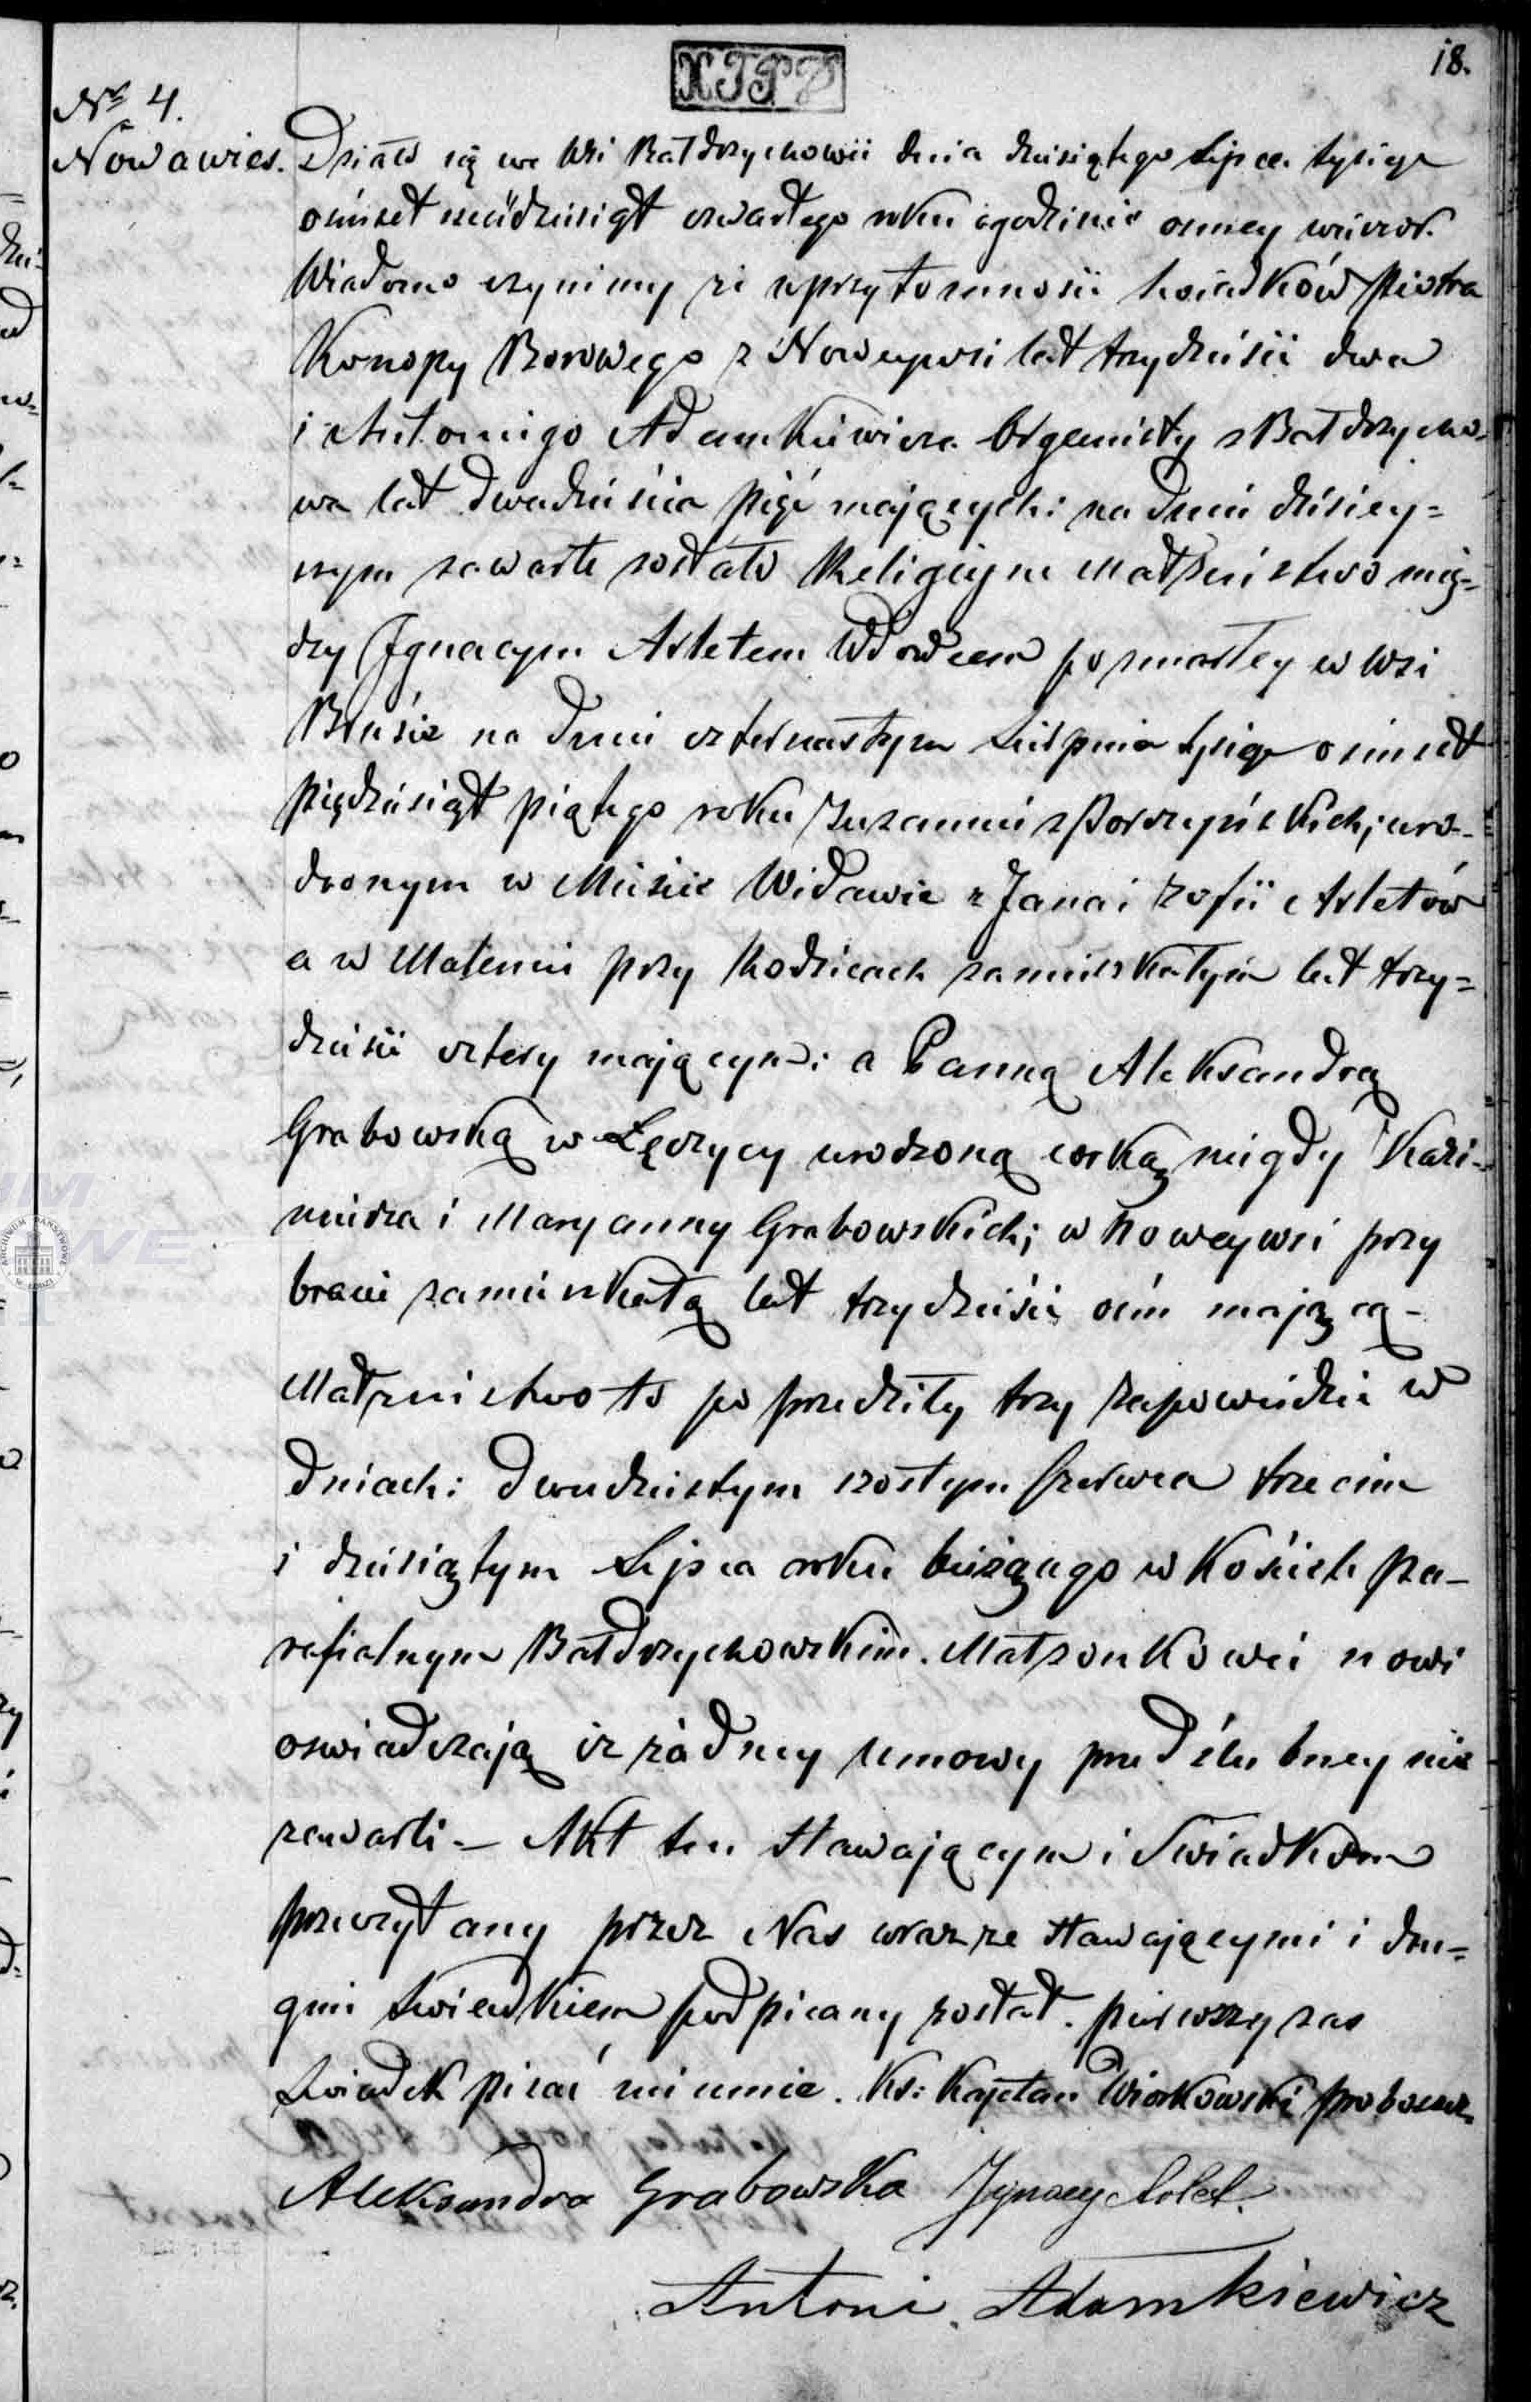 18.
Nr 4.
Nowawies.
Działo się we Wsi Bałdrzychowii dnia dziesiątego Lipca tysiąc
osimset sześdziesiąt czwartego roku o godzinie osmey wieczor.
Wiadomo czynimy że w przytomności świadków Piotra
Konopy Borowego z Nowey wsi lat trzydzieści dwa
i Antoniego Adamkiewicza Organisty z Bałdrzycho-
wa lat dwadzieścia pięć maiących: na dniu dzisiey=
szym zawarte zostało Religijne Małżeństwo mię=
dzy Ignacym Arletem Wdowcem po zmarłey w Wsi
Brusie na dniu czternastym Sierpnia tysiąc osimset
piędziesiąt piątego roku Zuzannie z Porczyńskich; uro-
dzonym w Mieście Widawie z Jana i Zofii Arletów
a w Maleniu przy Rodzicach zamieszkałym lat trzy=
dzieści cztery mającym: a Panną Aleksandrą
Grabowską w Łęczycy urodzoną corką niegdy Kazi-
mierza i Maryanny Grabowskich; w Nowey wsi przy
bracie zamieszkałą lat trzydzieści osim mającą -
Małżeństwo to poprzedziły trzy zapowiedzie w
dniach: dwudziestym szostym Czerwca trzecim
i dziesiątym Lipca roku bieżącego w Kościele Pa-
rafialnym Bałdrzychowskim. Małżonkowie nowi
oswiadczają iż żadney umowy przedślubney nie
zawarli - Akt ten stawającym i Swiadkom
przeczytany przez Nas wraz ze stawającymi i dru=
gim swiadkiem podpisany został. pierwszy zas
swiadek pisać nie umie. Ks: Kajetan Wiorkowski proboszcz
Aleksandra Grabowska Ignacy Arlet.
Antoni Adamkiewicz
ARCHIWUM PAŃSTWOWE W ŁODZI